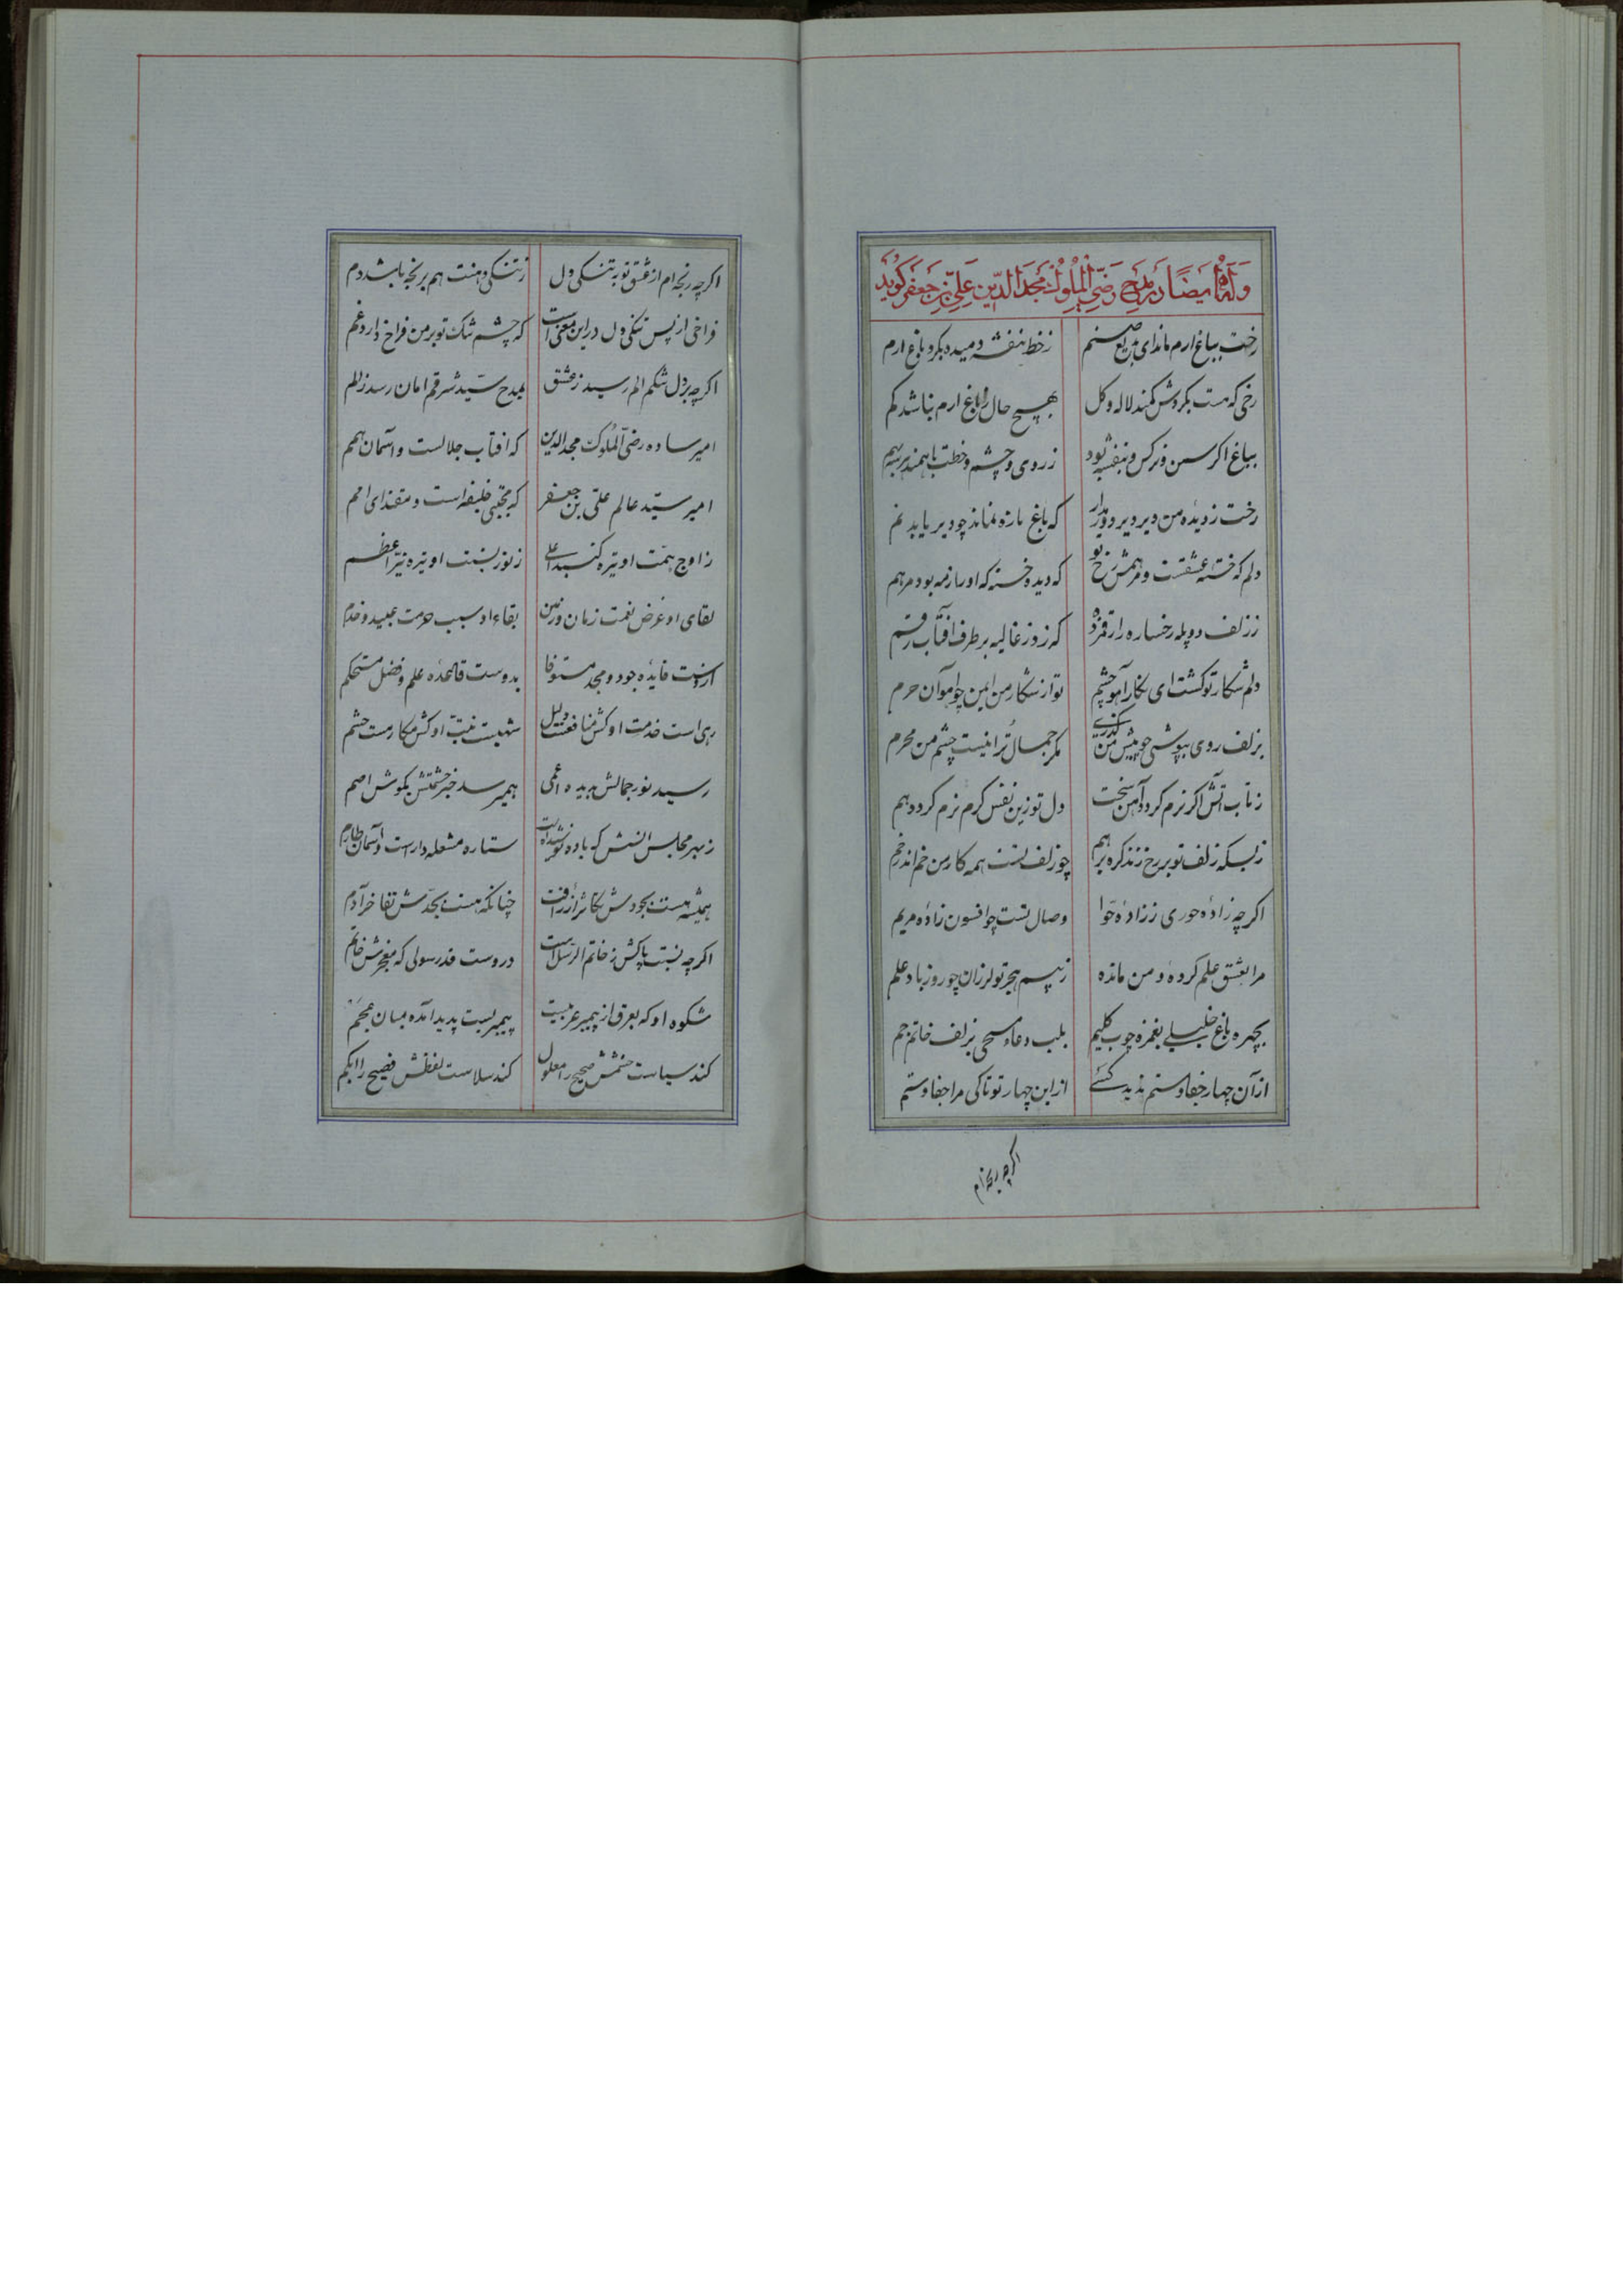 وله ایضا در مدح رضی الملوک مجدالدین علی بن جعفر کوید
رخت بباغ ارم ماند ای بدیع صنم زخط بنفشه دمیده بکرد باغ ارم
رخی که هست بکردش کمند لاله و کل بهیچ حال زباغ ارم نباشد کم
بباغ اکر سمن و نرکس و بنفشه بود ز روی و چشم و خطت باهمند هرسه بهم
رخت ز دیده من دیر دیر دور مدار که باغ تازه نماند چو دیر یابد نم
دلم که خسته عشقست و مرهمش رخ تو که دیده خسته که او را زمه بود مرهم
ز زلف دو پله رخساره را رقم زده که زد ز غالیه بر طرف آفتاب رقم
دلم شکار تو کشت ای نکار آهو چشم تو از شکار من ایمن چو آهوان حرم
بزلف روی بپوشی چو پیش من کذری مکر جمال ترا نیست چشم من محرم
ز تاب آتش اکر نرم کردد آهن سخت دل تو زین نفس کرم نرم کردد هم
ز بسکه زلف تو بر رخ زند کره برهم چو زلف تست همه کار من خم اندر خم
اکرچه زاده حوری ز زاده حوا وصال تست چو افسون زاده مریم
مرا بعشق علم کرده و من مانده ز بیم هجر تو لرزان چو روز باد علم
بچهره باغ خلیلی بغمزه چوب کلیم بلب دعاء مسیحی بزلف خاتم جم
از آن چهار جفا و ستم ندید کسی از این چهار تو تا کی مرا جفا و ستم
اکرچه رنجه ام
اکرچه رنجه ام از عشق تو بتنکی دل ز تنکی دهنت هم برنجه باشد دم
فراخی از پس تنکی دل در این معنی است که چشم تنک تو بر من فراخ دارد غم
اکرچه بر دل تنکم الم رسید ز عشق بمدح سید شرقم امان رسد ز الم
امیر ساده رضی الملوک مجدالدین که آفتاب جلالست و آسمان همم
امیر سید عالم علی بن جعفر که مجتبی خلیفه است و مقتدای امم
ز اوج همت او تیره کنبد اعلی ز نور نسبت او تیره نیر اعظم
لقای او غرض نعمت زمان و زمین بقاء او سبب حرمت عبید و خدم
ازوست فایده جود و مجد مستوفا بدوست قاعده علم و فضل مستحکم
رهی است خدمت او کش منافعست دلیل شهیست نیت او کش مکارمست حشم
رسید نور جمالش بدیده اعمی همیرسد خبر حشمتش بکوش اصم
ز بهر مجلس انسش که باده نوشد است ستاره مشعله دار است و آسمان طارم
همیشه هست بجودش تکاثر از رافت چنانکه هست بجدش تفاخر آدم
اکرچه نسبت پاکش ز خاتم الرسل است دروست قدر رسولی که مفخرش خاتم
شکوه او که بعرق از پیمبر عربیست پیمبریست پدید آمده میان عجم
کند سیاست خشمش صحیح را معلول کند سلاست لفظش فصیح را ابکم